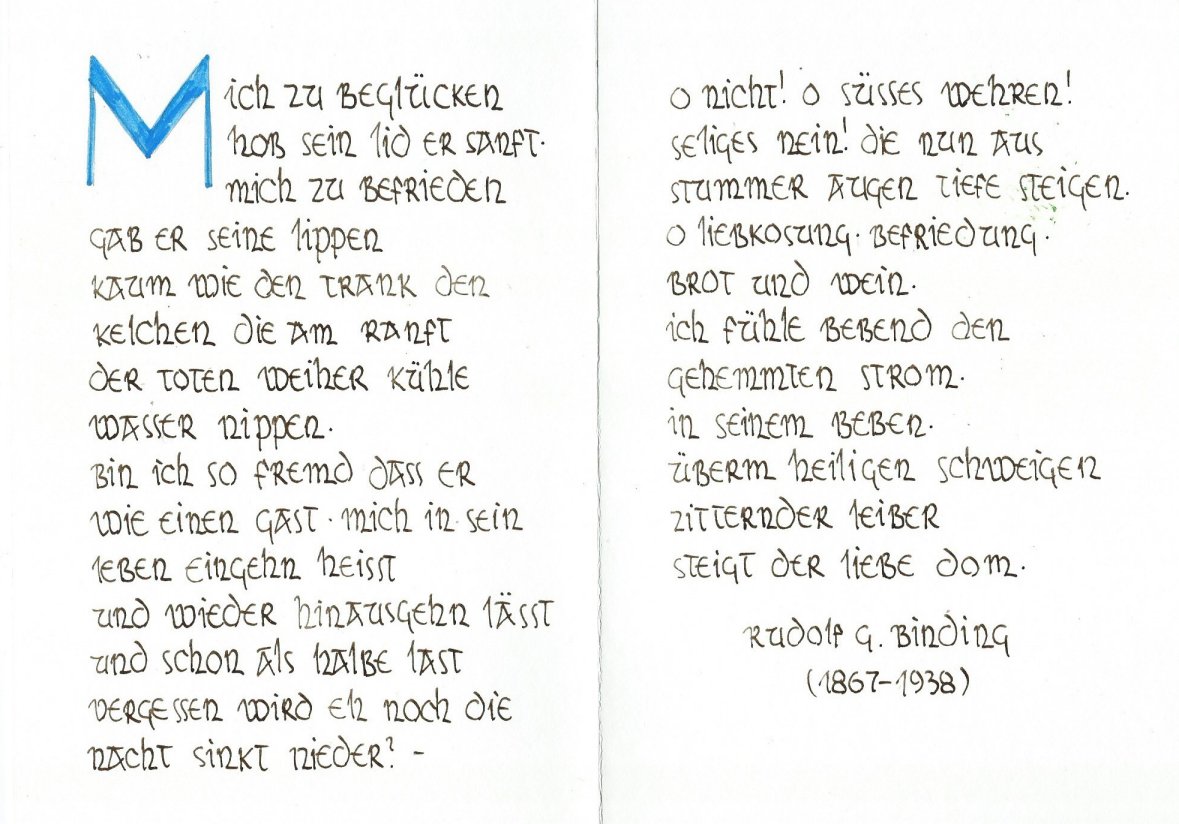 Mich zu beglücken
hob sein lid er sanft.
mich zu befrieden
gab er seine lippen
kaum wie den trank den
kelchen die am ranft
der toten weiher kühle
wasser nippen.
bin ich so fremd dass er
wie einen gast. mich in sein
leben eingehn heisst
und wieder hinausgehn lässt
und schon als halbe last
vergessen wird eh noch die
nacht sinkt nieder? -
o nicht! o süsses wehren!
seliges nein! die nun aus
stummer augen tiefe steigen.
o liebkosung. befriedung.
brot und wein.
ich fühle bebend den
gehemmten strom.
in seinem beben.
überm heiligen schweigen
zitternder leiber
steigt der liebe dom.
Rudolf G. Binding
(1867-1938)